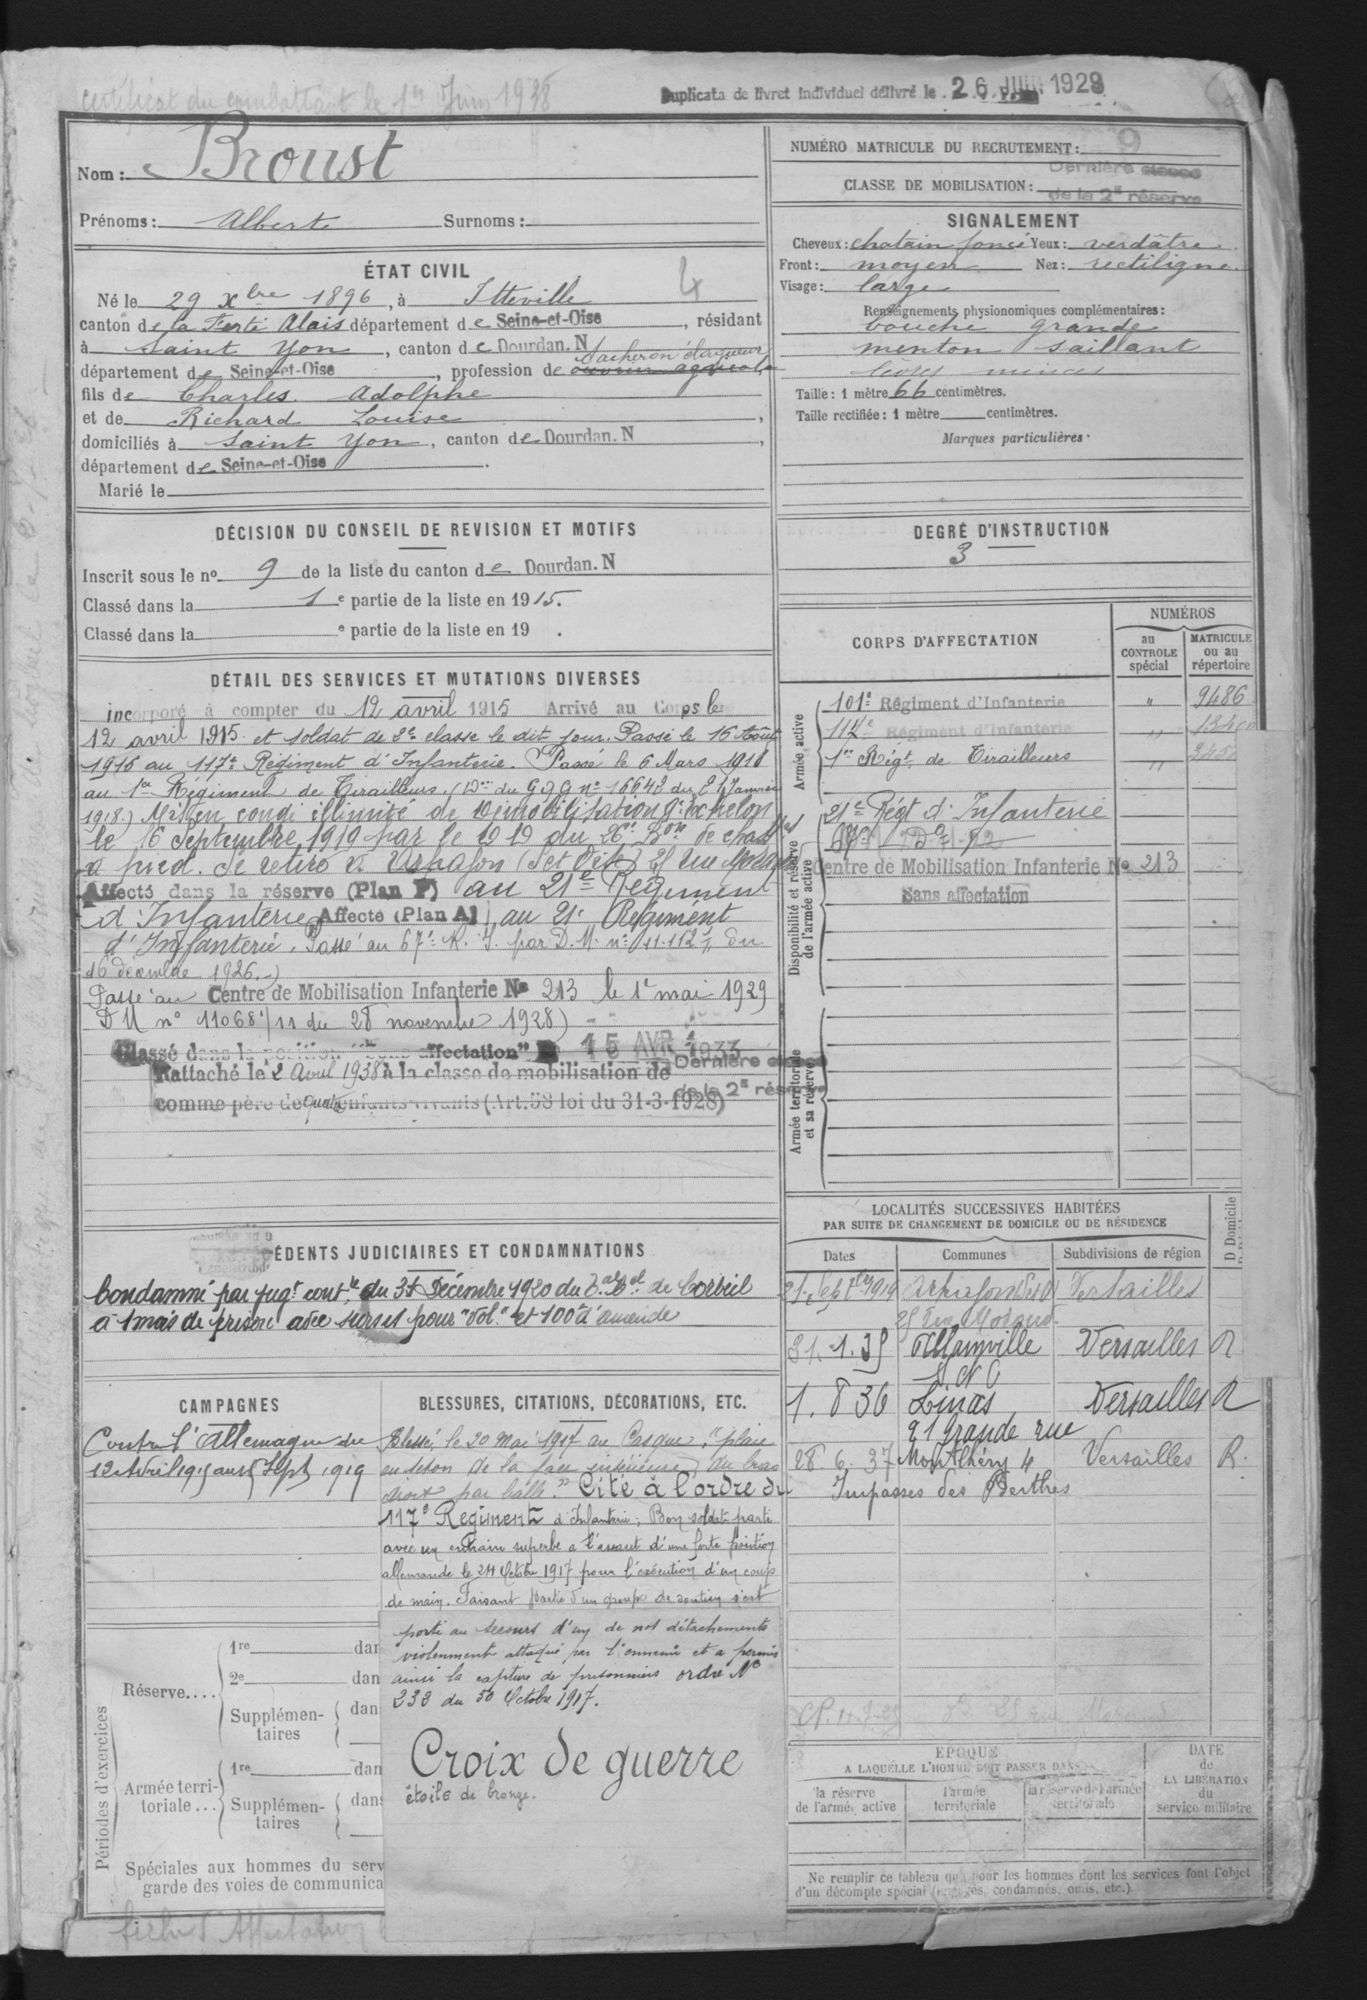 certificat du combattant le 1er Juin 1938
Duplicata de livret individuel délivré le 26 JUIN 1929
Nom: Broust
Prénoms: Albert Surnoms:
ÉTAT CIVIL
4
Né le 29 Xbre 1896, à Itteville
canton de la Ferté Alais département de Seine-et-Oise, résidant
à Saint Yon, canton de Dourdan. N
département de Seine-et-Oise, profession de ouvrier agricole
fils de Charles Adolphe
et de Richard Louise,
domiciliés à Saint Yon, canton de Dourdan. N,
département de Seine-et-Oise.
Marié le
DÉCISION DU CONSEIL DE REVISION ET MOTIFS
Inscrit sous le no 9 de la liste du canton de Dourdan. N
Classé dans la 1e partie de la liste en 1915.
Classé dans la e partie de la liste en 19 .
DÉTAIL DES SERVICES ET MUTATIONS DIVERSES
incorporé à compter du 12 avril 1915 Arrivé au Corps le
12 avril 1915 et soldat de 2e classe le dit jour. Passé le 16 Août
1916 au 117e Régiment d'Infanterie. Passé le 6 Mars 1918
au 1er Régiment de Tirailleurs. du G.Q.G. no 16642 du 21 Janvier
1918.) Mis en congé illimité de Démobilisation 9e Echelon
le 16 Septembre 1919 par le du 26e Bon de chass
à pied. Se retire à Arpajon (S et Oise) 25 Rue Morand
Affecté dans la réserve (Plan P) au 21e Régiment
d'Infanterie Affecté (Plan A) au 21e Régiment
d'Infanterie. Passé au 67e R. I. par D. M. no 11.112 du
16 décembre 1926.)
Passé au Centre de Mobilisation Infanterie No 213 le 1er mai 1929
DM no 11068 /11 du 28 novembre 1928)
Classé dans la position "sans affectation" 15 AVR 1933
Rattaché le 2 Avril 1938 à la classe de mobilisation de Dernière classe
de la 2e réserve
comme père de quatre enfants vivants (Art. 58 loi du 31-3-1928)
ÉDENTS JUDICIAIRES ET CONDAMNATIONS
Condamné par jugt contre du 31 Décembre 1920 du de Corbeil
à 1 mois de prison avec sursis pour "Vol" et 100f d'amende
CAMPAGNES
Contre l'Allemagne du
12 Avril 1915 au 15 Sept 1919
BLESSURES, CITATIONS, DÉCORATIONS, ETC.
Blessé, le 20 Mai 1917 au Casque, "plaie
en séton de la face antérieure du bras
droit par balle." Cité à l'ordre du
117e Régiment d'Infanterie; Bon soldat parti
avec un entrain superbe à l'assaut d'une forte position
allemande le 24 Octobre 1917 pour l'exécution d'un coup
de main. Faisant partie d'un groupe de soutien s'est
porté au secours d'un de nos détachements
violemment attaqué par l'ennemi et a permis
ainsi la capture de prisonniers ordre No
232 du 30 Octobre 1917.
Croix de guerre
étoile de bronze.
Périodes d'exercices
Réserve....
1re dan
2e dan
Supplémentaires dan
Armée territoriale...
1re dan
Supplémentaires dans
Spéciales aux hommes du serv
garde des voies de communica
NUMÉRO MATRICULE DU RECRUTEMENT: 9
CLASSE DE MOBILISATION: Dernière classe
de la 2e réserve
SIGNALEMENT
Cheveux: chatain foncé Yeux: verdâtre
Front: moyen Nez: rectiligne
Visage: large
Renseignements physionomiques complémentaires:
bouche grande
menton saillant
lèvres minces
Taille: 1 mètre 66 centimètres.
Taille rectifiée: 1 mètre centimètres.
Marques particulières:
DEGRÉ D'INSTRUCTION
3
CORPS D'AFFECTATION
NUMÉROS
au CONTROLE spécial
MATRICULE ou au répertoire
Armée active
101e Régiment d'Infanterie " 9486
Régiment d'Infanterie "
1er Régt de Tirailleurs "
Disponibilité et réserve de l'armée active
21e Régt d'Infanterie
Centre de Mobilisation Infanterie No 213
Sans affectation
Armée territoriale et sa réserve
LOCALITÉS SUCCESSIVES HABITÉES
PAR SUITE DE CHANGEMENT DE DOMICILE OU DE RÉSIDENCE
Dates Communes Subdivisions de région D Domicile
21 Septbre 1919 Arpajon Versailles
25 Rue Morand
31. 1. 35 Ollainville Versailles R
1. 8 36 Linas Versailles R
91 Grande rue
28. 6. 37 Montlhéry 4 Versailles R.
Impasses des Berthes
25 rue Morand
EPOQUE
A LAQUELLE L'HOMME DOIT PASSER DANS
la réserve de l'armée active
l'armée territoriale
la réserve de l'armée territoriale
DATE de LA LIBÉRATION du service militaire
Ne remplir ce tableau que pour les hommes dont les services font l'objet
d'un décompte spécial (engagés, condamnés, omis, etc.)